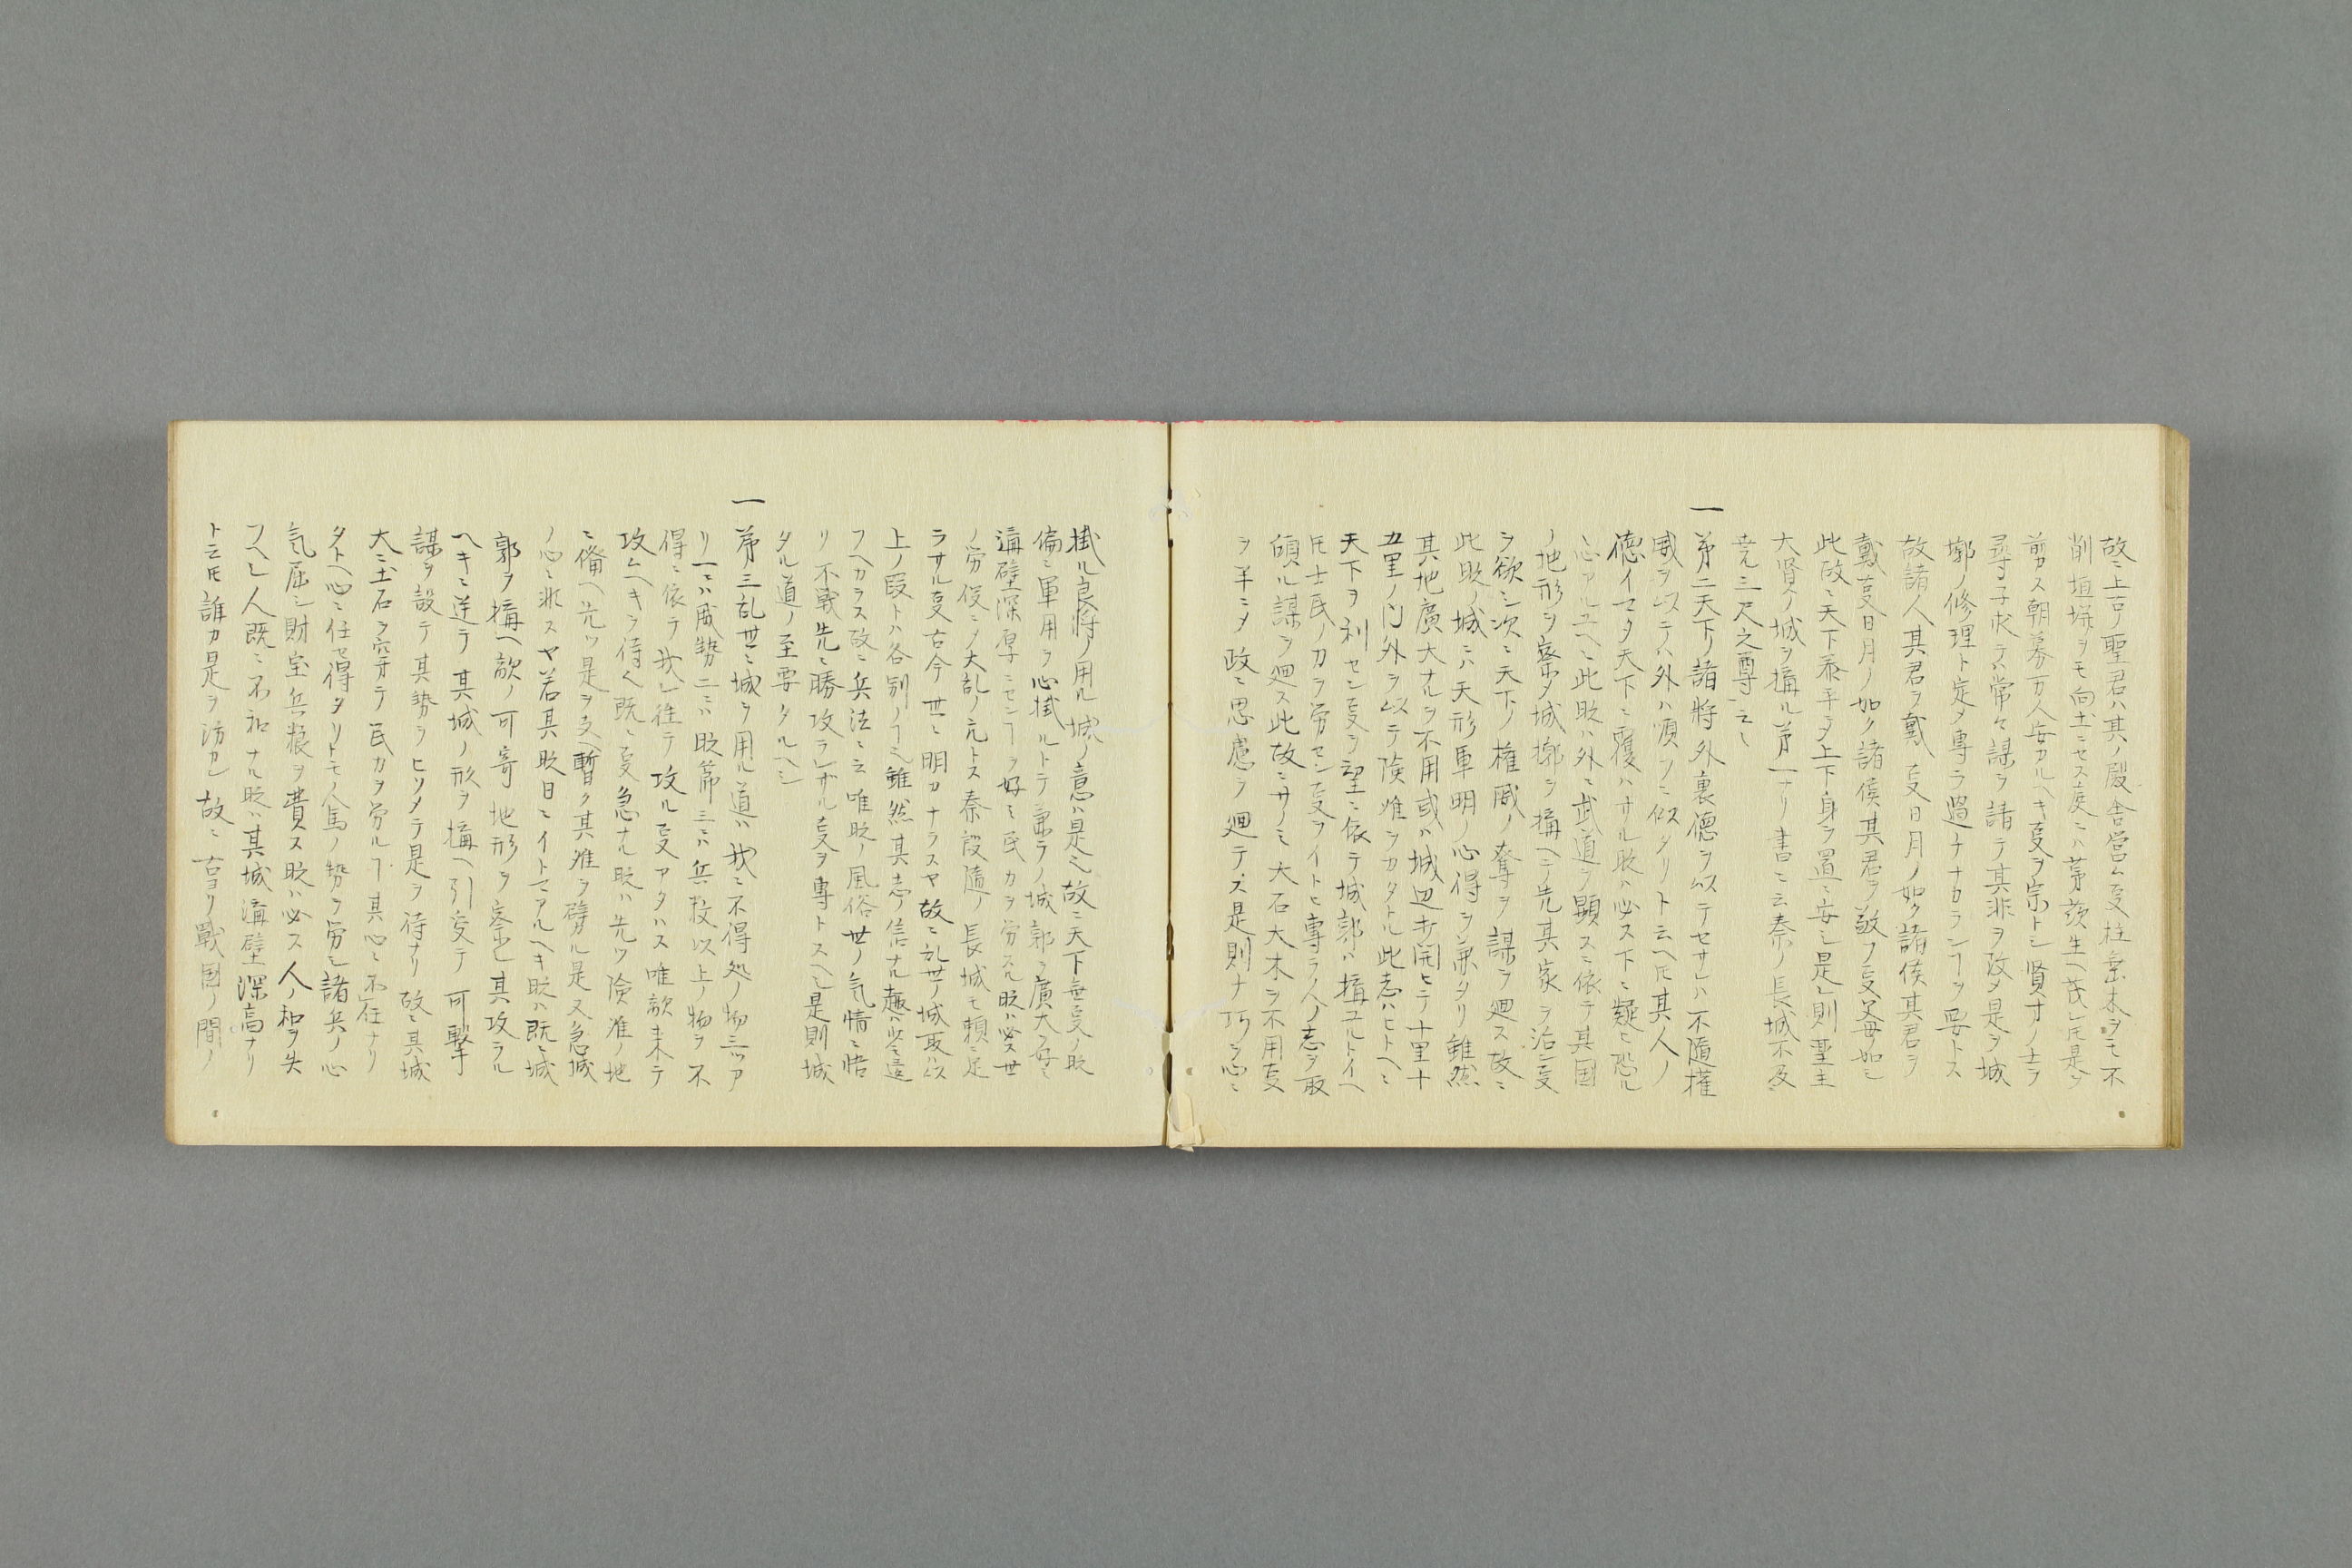 故ニ上古ノ聖君ハ其ノ殿舎営ム叓柱棄木ヲモ不
削垣墻ヲモ向土ニセス庭ニハ茅茨生ヘ茂レ𪜈是ヲ
剪ス朝暮万人安カルヘキ叓ヲ宗トシ賢才ノ士ヲ
尋子求テハ常々謀ヲ請テ其非ヲ改メ是ヲ城
墎ノ修理ト定メ専ラ過チナカランヿヲ要トス
故諸人其君ヲ戴叓日月ノ如ク諸侯其君ヲ
戴叓日月ノ如ク諸侯其君ヲ敬フ叓父母如シ
此故ニ天下泰平ヲ上下身ヲ置ニ安シ是則聖主
大賢ノ城ヲ搆ル第一ナリ書ニ云秦ノ長城不及
尭三尺之尊ニ云々
一第二天下ノ諸将外裏徳ヲ以テセサレハ不随権
威ヲ以ステハ外ハ順フニ似タリト云ヘ𪜈其人ノ
徳イマタ天下ニ覆ハサル時ハ必ス下ニ疑ヒ恐ル
心アルユヘニ此時ハ外ニ武道ヲ顕スニ依テ其国
ノ地形ヲ察メ城墎ヲ搆ヘテ先其家ヲ治ン叓
ヲ欲シ次ニ天下ノ権威ノ奪ヲ謀ヲ廻ス故ニ
此時ノ城ニハ天形軍明ノ心得ヲ兼タリ雖然
其地廣大ナルヲ不用或ハ城辺ヲ開ヒテ十里十
五里ノ内外ヲ以テ険难ヲカタトル此志ハヒトヘニ
天下ヲ利セン叓ヲ望ニ依テ城郭ハ搆ユルトイヘ
𪜈士民ノ力ヲ労セン叓ヲイトヒ専ラノ人ノ志ヲ取
傾ル謀ヲ廻ス此故ニサノミ大石大木ヲ不用叓
ヲ羊ニメ政ニ思慮ヲ廻テス是則ナ巧ヲ心ニ
掛ル良将ノ用ル城ノ意ハ是也故ニ天下無叓ノ時
偏ニ軍用ヲ心掛ルトテ専ラノ城郭ヲ廣大ヲ好ミ
溝壁深厚ニセンヿヲ好ミ民カヲ労スル時ハ必ス世
ノ労役ニメ大乱ノ元トス秦設隨ノ長城モ頼ニ足
ラサル叓古今世ニ明カナラスヤ故ニ乱世ノ城取ハ以
上ノ段トハ各別ノヿ也雖然其志ノ信ナル趣ハ必ス違
フヘカラス故ニ兵法ニ云唯時ノ風俗世ノ気情ニ悟
リ不戦先ニ勝攻ラレザル叓ヲ専トスヘシ是則城
タル道ノ至要タルヘシ
一第三乱世ニ城ヲ用ル道ハ我ニ不得処ノ物三ツア
リ一ニハ威勢二ニハ時節三ニハ兵投以上ノ物ヲ不
得ニ依テ我レ往テ攻ル叓アタハス唯敵来テ
攻ムヘキヲ待ヘ既ニ叓急ナル時ハ先ツ険难ノ地
ニ備ヘ先ツ是ヲ支ヘ暫ク其难ヲ礕ル是又急城
ノ心ニ非スヤ若其時日ニイトマアルヘキ時ハ既ニ城
郭ヲ搆ヘ敵ノ可寄地形ヲ察シ其攻ラル
ヘキニ逆テ其城ノ形ヲ搆ヘ引受テ可撃
謀ヲ設テ其勢ヲヒソメテ是ヲ待ナリ故ニ其城
大ニ土石ヲ穿テ民力ヲ労ルヿ其心ニ不任ナリ
タトヘ心ニ任セ得タリトモ人馬ノ勢ヲ労シ諸兵ノ心
気屈シ財宝兵粮ヲ費ス時ハ必ス人ノ和ヲ失
フヘシ人既ニ不和ナル時ハ其城溝壁深高ナリ
ト云𪜈誰カ是ヲ防カン故ニ古ヨリ戦国ノ間ノ